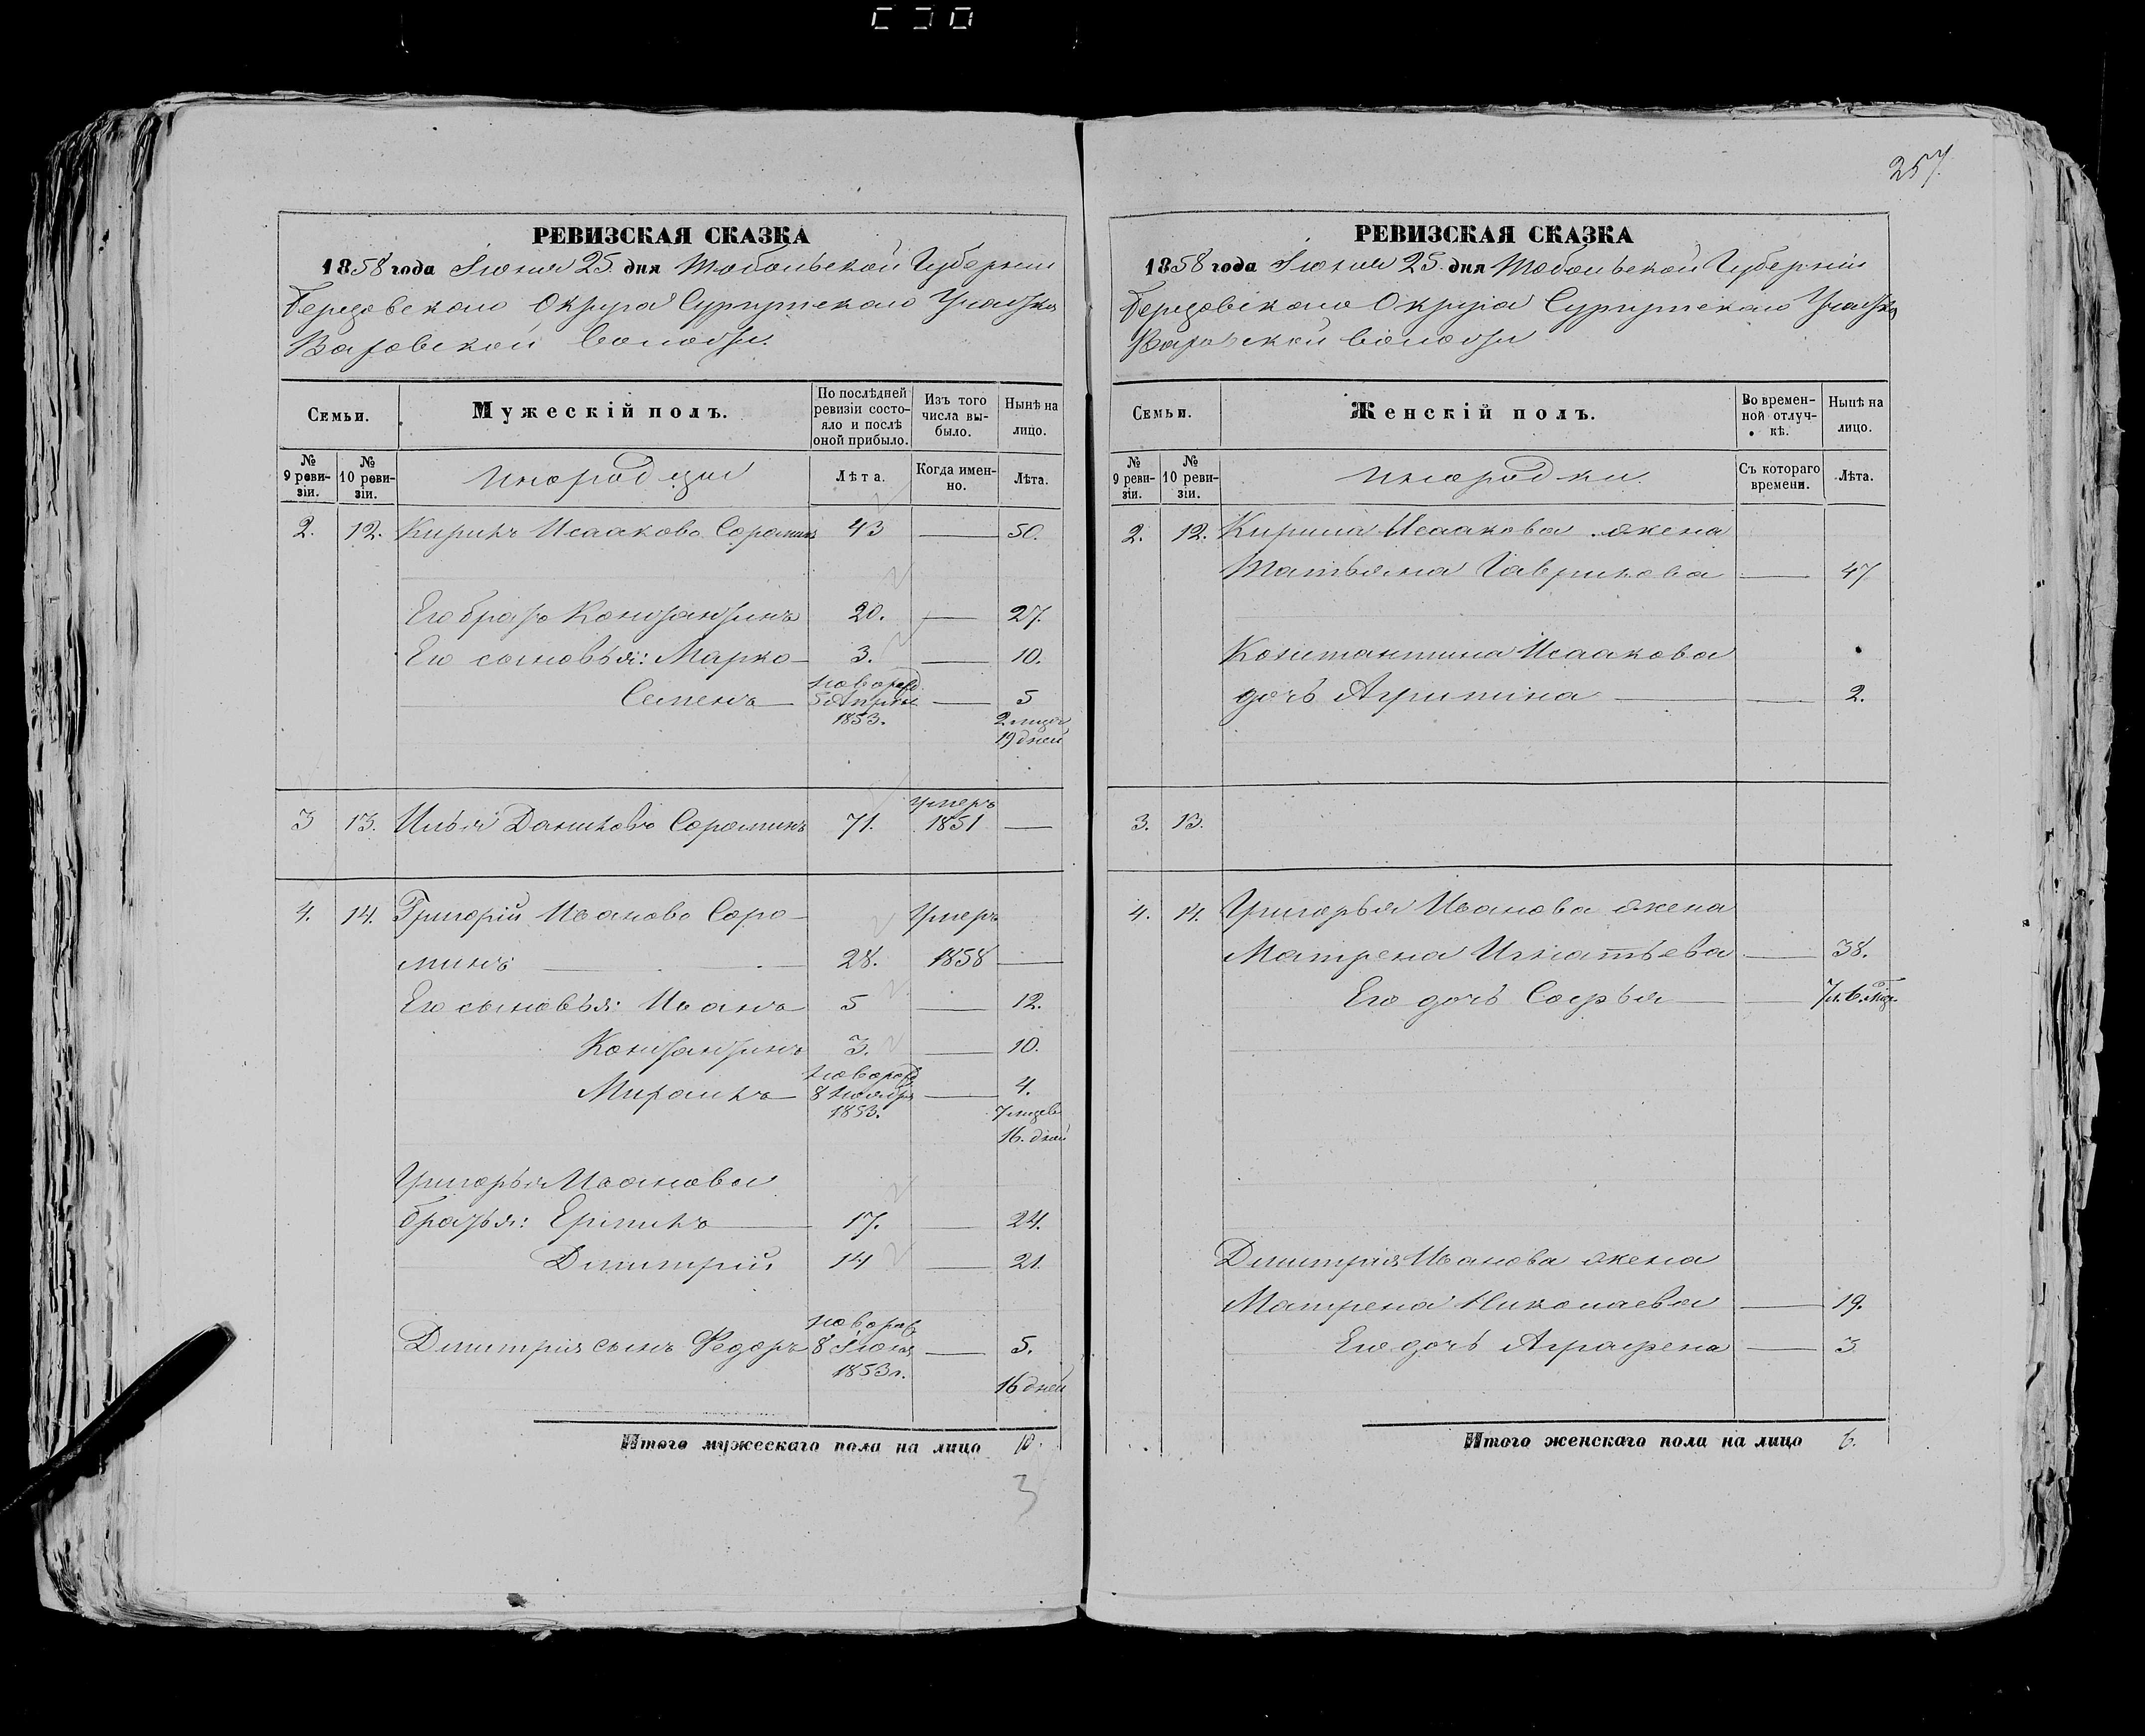 257.
РЕВИЗСКАЯ СКАЗКА
1858 года Іюня 25. дня Тобольской Губерніи
Березовскаго Округа Сургутскаго Участка
Ваховской волости.
Семьи.
Мужескій полъ.
По послѣдней
ревизіи состо-
яло и послѣ
оной прибыло.
Изъ того
числа вы-
было.
Нынѣ на
лицо.
№
9 реви-
зіи.
№
10 реви-
зіи.
Инородцы
Лѣта.
Когда имен-
но.
Лѣта.
2. 12. Кирилъ Исааковъ Сороминъ 43 — 50.
Его братъ Константинъ 20. — 27.
Его сыновья: Марко — 3. — 10.
новорожд
Семенъ — 5 Апрѣля — 5
1853. 2 мѣсяца
19 дней
умеръ
3 13. Илья Даниловъ Сороминъ 71. 1851 —
4. 14. Григорій Ивановъ Соро- Умеръ
минъ — 28. 1858 —
Его сыновья: Иванъ 5 — 12.
Константинъ 3. — 10.
новорожд
8 Ноября — 4.
1853. 7 мѣсяцевъ
16. дней
Григорья Иванова
братья: — 17. — 24.
Дмитрій 14 — 21.
новорожд
Дмитрія сынъ Федоръ 8 Іюня — 5.
1853 г.
16 дней
Итого мужескаго пола на лицо 10.
3
РЕВИЗСКАЯ СКАЗКА
1858 года Іюня 25. дня Тобольской Губерніи
Березовскаго Округа Сургутскаго Участка
Ваховской волости
Семьи.
Женскій полъ.
Во времен-
ной отлуч-
кѣ.
Нынѣ на
лицо.
№
9 реви-
зіи.
№
10 реви-
зіи.
Инородки.
Съ котораго
времени.
Лѣта.
2. 12. Кирила Исаакова жена
Татьяна Гаврилова — 47
Константина Исаакова
дочь Агрипина — — 2.
3. 13.
4. 14. Григорья Иванова жена
Матрена Игнатьева — 38.
Его дочь Софья — — 7 л. 6. мѣс.
Дмитрія Иванова жена
Матрена Николаева — 19.
Его дочь Аграфена — 3
Итого женскаго пола на лицо 6.